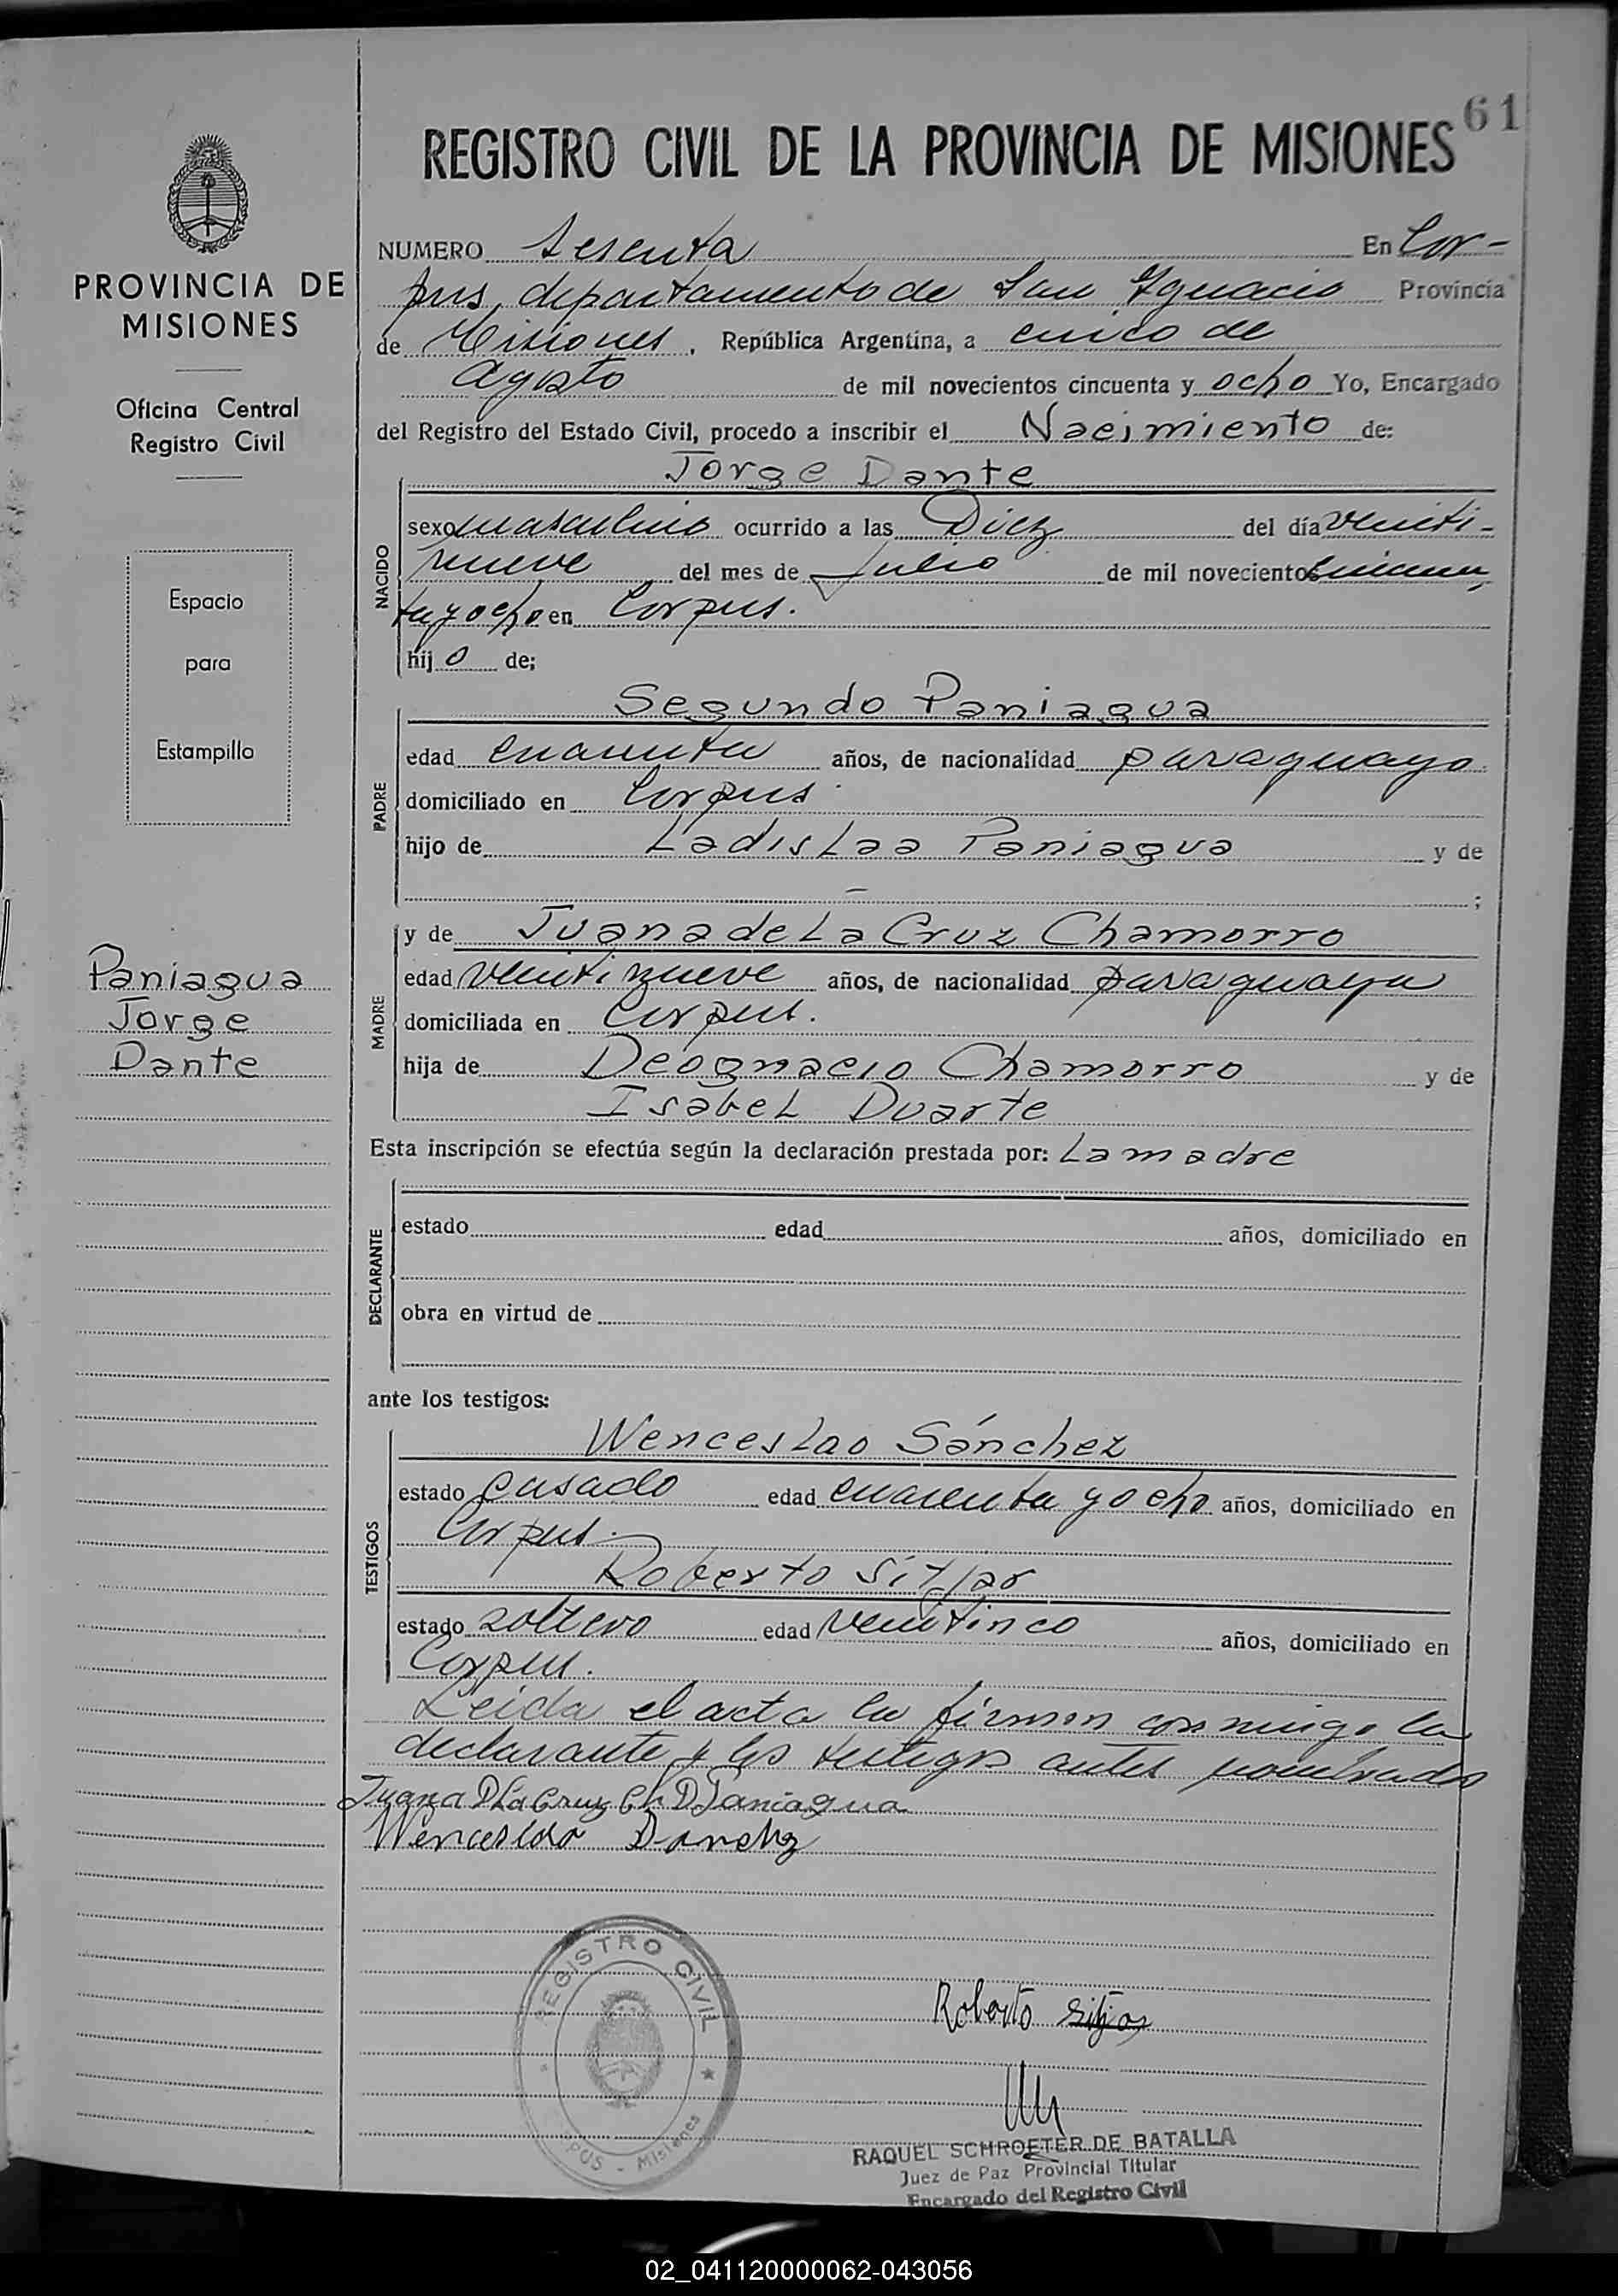 61
REGISTRO CIVIL DE LA PROVINCIA DE MISIONES
PROVINCIA DE
MISIONES
Oficina Central
Registro Civil
Espacio
para
Estampillo
Paniagua
Jorge
Dante
NUMERO Sesenta En Cor-
pus, departamento de San Ygnacio Provincia
de Misiones, República Argentina, a cinco de
Agosto de mil novecientos cincuenta y ocho Yo, Encargado
del Registro del Estado Civil, procedo a inscribir el Nacimiento de:
Jorge Dante
NACIDO
sexo masculino ocurrido a las Diez del día veinti-
nueve del mes de Julio de mil novecientos cincuen
ta y ocho en Corpus.
hijo de;
Segundo Paniagua
PADRE
edad cuarenta años, de nacionalidad paraguayo
domiciliado en Corpus.
hijo de Ladislaa Paniagua y de
— ;
MADRE
y de Juana de La Cruz Chamorro
edad veintinueve años, de nacionalidad paraguaya
domiciliada en Corpus.
hija de Deognacio Chamorro y de
Isabel Duarte
Esta inscripción se efectúa según la declaración prestada por: La madre
DECLARANTE
estado edad años, domiciliado en
obra en virtud de
ante los testigos:
TESTIGOS
Wenceslao Sánchez
estado casado edad cuarenta y ocho años, domiciliado en
Corpus.
Roberto Sitjar
estado soltero edad veintinco años, domiciliado en
Corpus.
Leida el acta la firman conmigo la
declarante y los testigos antes nombrados
Juana D La Cruz Ch D Paniagua
Wenceslao
Roberto Sitjar
REGISTRO CIVIL
PUS - Misiones
RAQUEL SCHROETER DE BATALLA
Juez de Paz Provincial Titular
Encargado del Registro Civil
02_041120000062-043056